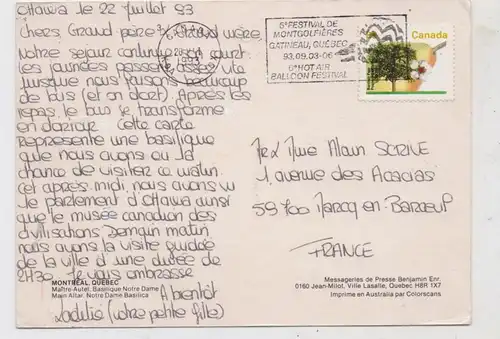 Ottawa le 22 Juillet 93
Chers Grand père & Grand mère,
Notre sejour continue son court
les journées passent assez vite
puisque nous faisons beaucoup
de bus (et on dort). Après les
repas, le bus se transforme
en Cette carte
représente une basilique
que nous avons eu la
chance de visiter ce matin.
Cet après-midi, nous avons vu
le parlement d'Ottawa ainsi
que le musée canadien des
civilisations Demain matin,
nous avons la visite guidée
de la ville d'une durée de
2H30. Je vous embrasse
A bientôt
(votre petite fille)
MONTRÉAL, QUÉBEC
Maître-Autel, Basilique Notre Dame
Main Altar, Notre Dame Basilica
5e FESTIVAL DE
MONTGOLFIÈRES
GATINEAU, QUÉBEC
93.09.03-06
6th HOT AIR
BALLOON FESTIVAL
Canada
Mr & Mme Alain SCRIVE
1, avenue des Acacias
59700 Marcq-en-Baroeul
FRANCE
Messageries de Presse Benjamin Enr.
0160 Jean-Milot, Ville Lasalle, Quebec H8R 1X7
Imprime en Australia par Colorscans